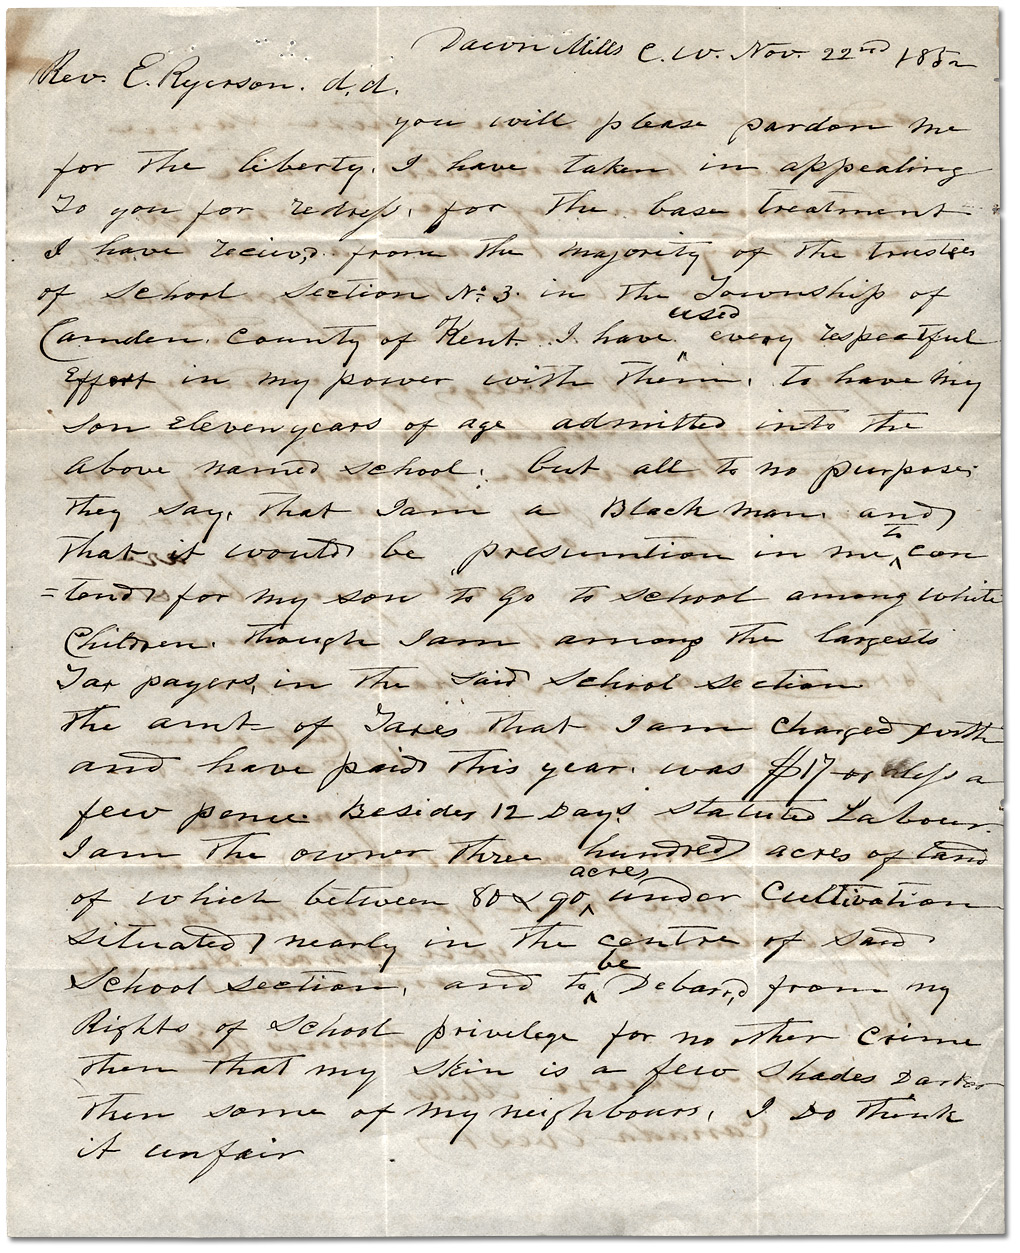 Dawn Mills C.W. Nov. 22nd 1852
Rev. E. Ryerson. d.d.
you will please pardon me
for the liberty. I have taken in appealing
To you for redress, for the base treatment
I have recieved from the majority of the trustees
of School Section No. 3. in the Township of
Camden. County of Kent. I have used every respectful
Effort in my power with them. to have my
Son Eleven years of age admitted into the
above named School. but all to no purpose.
they say. that I am a Black man. and
that it would be presumtion in me to con
=tend for my son to go to School among white
Children. though I am among the largests
Tax payers, in the said School section
the amt of Taxes that I am charged with
and have paid this year. was $17 or less a
few pence. Besides 12 Days. statuted Labour.
I am the owner three hundred acres of land
of which between 80 & 90 acres under Cultivation
Situated nearly in the centre of said
School section, and to be Debarred from my
Rights of School privilege for no other crime
then that my Skin is a few Shades Darker
then some of my neighbours, I Do think
it unfair